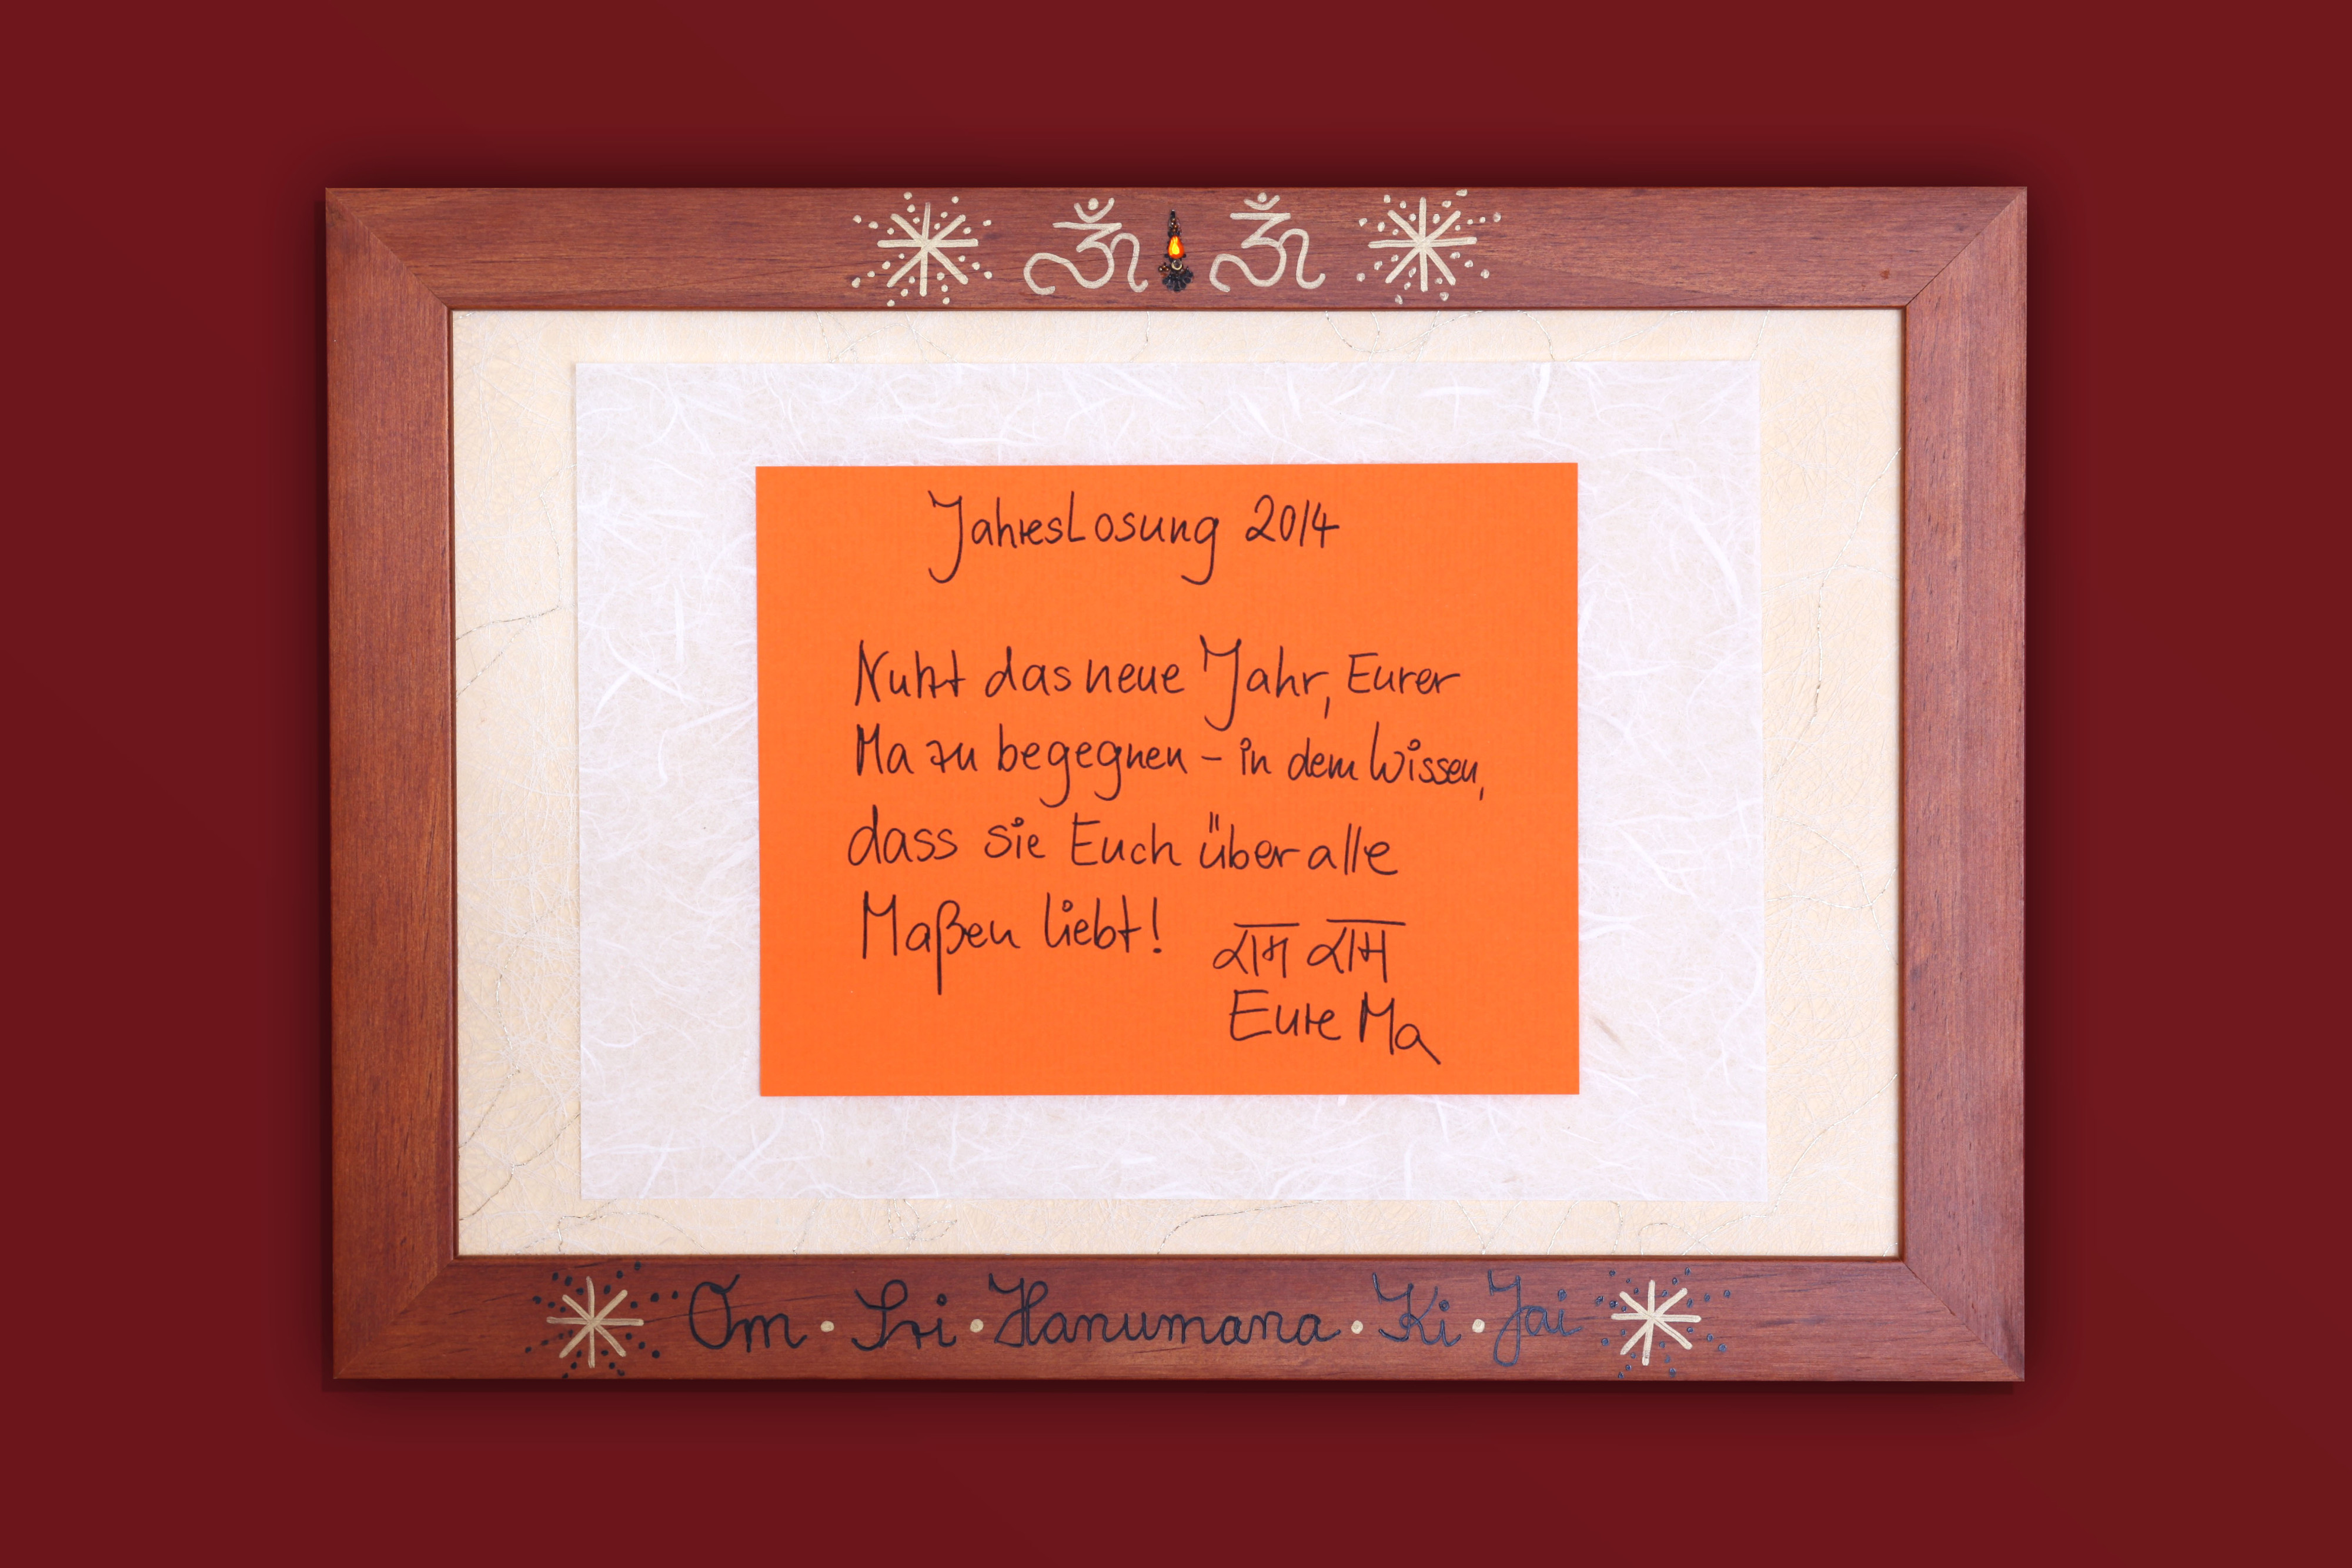 ॐ ॐ
JahresLosung 2014
Nutzt das neue Jahr, Eurer
Ma zu begegnen – in dem Wissen,
dass sie Euch über alle
Maßen liebt!
राम राम
Eure Ma
Om • Sri • Hanumana • Ki • Jai